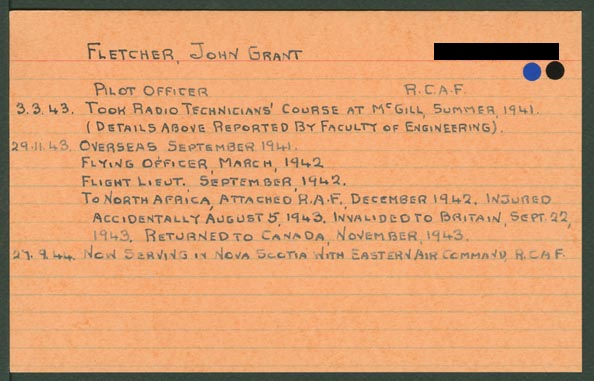 FLETCHER, JOHN GRANT
PILOT OFFICER R.C.A.F.
3.3.43. TOOK RADIO TECHNICIANS' COURSE AT McGILL, SUMMER, 1941.
(DETAILS ABOVE REPORTED BY FACULTY OF ENGINEERING).
29.11.43. OVERSEAS SEPTEMBER 1941.
FLYING OFFICER, MARCH, 1942
FLIGHT LIEUT., SEPTEMBER, 1942.
TO NORTH AFRICA, ATTACHED R.A.F., DECEMBER 1942. INJURED
ACCIDENTALLY AUGUST 5, 1943. INVALIDED TO BRITAIN, SEPT. 22,
1943. RETURNED TO CANADA, NOVEMBER, 1943.
27.9.44. NOW SERVING IN NOVA SCOTIA WITH EASTERN AIR COMMAND, R.C.A.F.